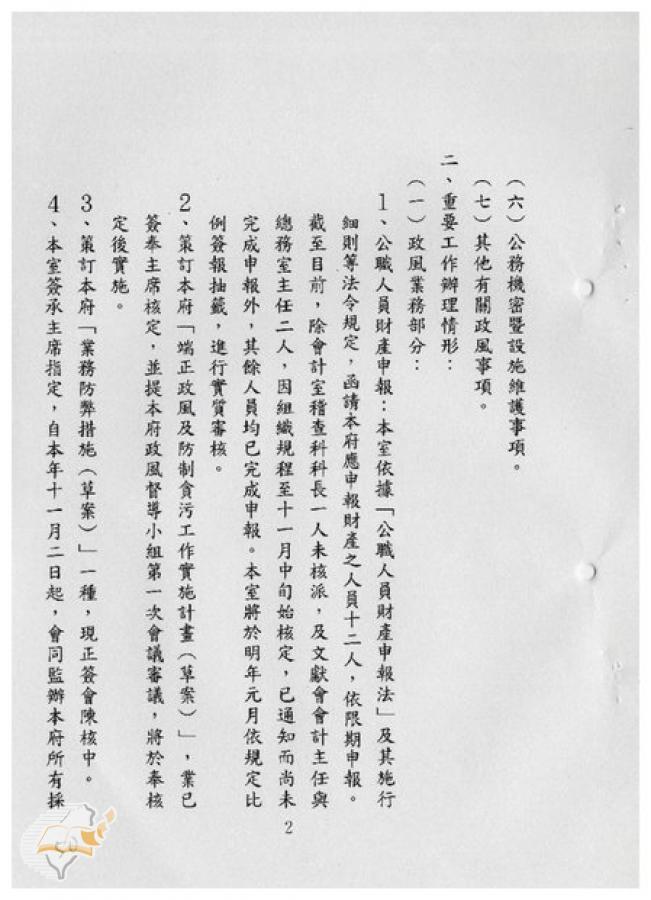 （六）公務機密暨設施維護事項。
（七）其他有關政風事項。
二、重要工作辦理情形：
（一）政風業務部分：
1、公職人員財產申報：本室依據「公職人員財產申報法」及其施行
細則等法令規定，函請本府應申報財產之人員十二人，依限期申報。
截至目前，除會計室稽查科科長一人未核派，及文獻會會計主任與
總務室主任二人，因組織規程至十一月中旬始核定，已通知而尚未
完成申報外，其餘人員均已完成申報。本室將於明年元月依規定比
例簽報抽籤，進行實質審核。
2、策訂本府「端正政風及防制貪污工作實施計畫（草案）」，業已
簽奉主席核定，並提本府政風督導小組第一次會議審議，將於奉核
定後實施。
3、策訂本府「業務防弊措施（草案）」一種，現正簽會陳核中。
4、本室簽承主席指定，自本年十一月二日起，會同監辦本府所有採
2